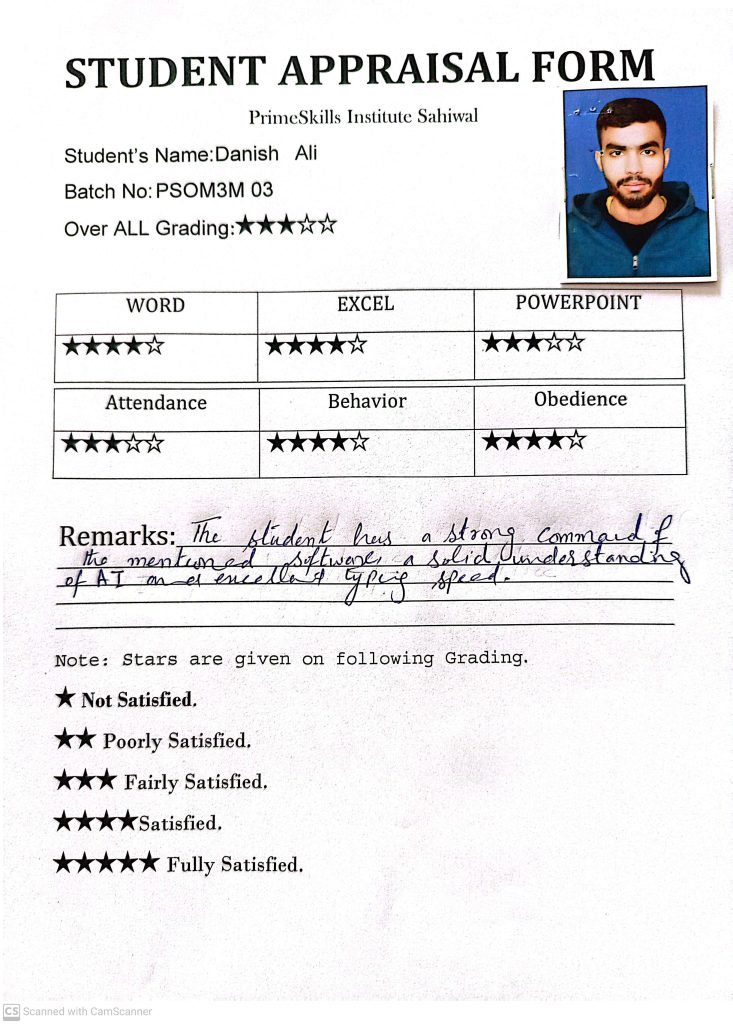 STUDENT APPRAISAL FORM
PrimeSkills Institute Sahiwal
Student's Name:Danish Ali
Batch No:PSOM3M 03
Over ALL Grading:★★★☆☆
WORD EXCEL POWERPOINT
★★★★☆ ★★★★☆ ★★★☆☆
Attendance Behavior Obedience
★★★☆☆ ★★★★☆ ★★★★☆
Remarks: The student has a strong command of
the mentioned software, a solid understanding
of AI excellent typing speed.
Note: Stars are given on following Grading.
★ Not Satisfied.
★★ Poorly Satisfied.
★★★ Fairly Satisfied.
★★★★Satisfied.
★★★★★ Fully Satisfied.
CS Scanned with CamScanner